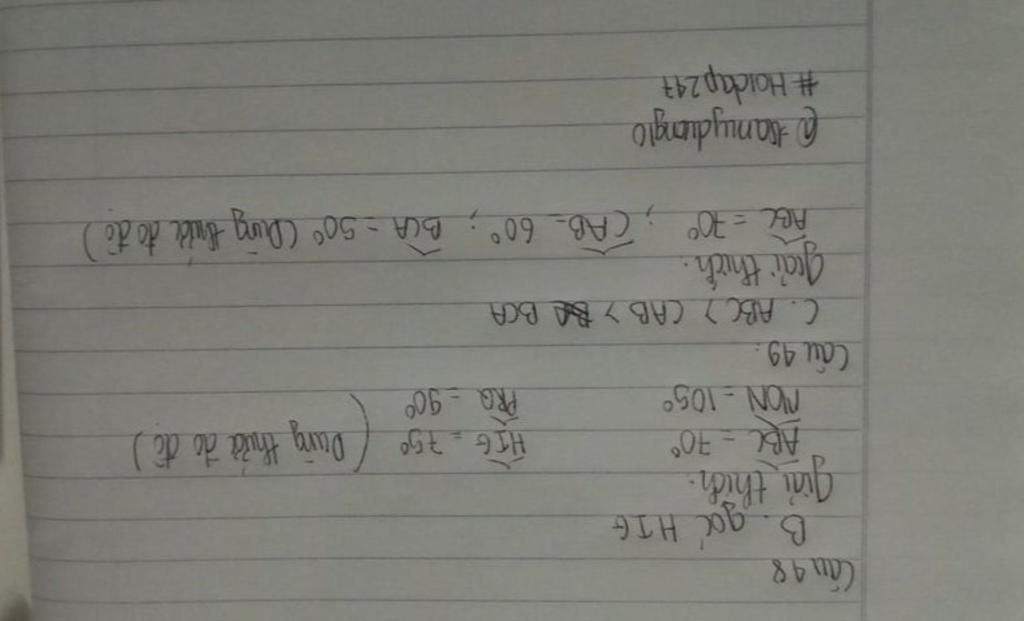 Câu 48
B. góc HIG
Giải thích.
ABC = 70° HIG = 75° (Dùng thước đo độ)
MON = 105° PRQ = 90°
Câu 49:
C. ABC > CAB > BCA
Giải thích.
ABC = 70° ; CAB = 60° ; BCA = 50° (Dùng thước đo độ)
#Hoidap247